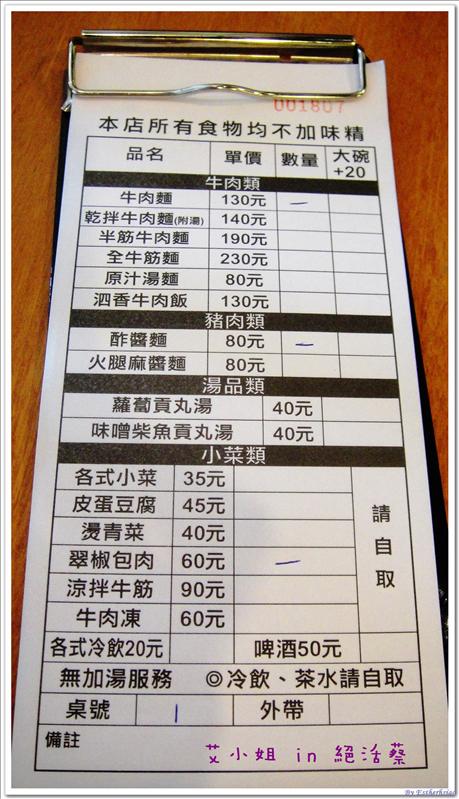 001807
本店所有食物均不加味精
品名 單價 數量 大碗+20
牛肉類
牛肉麵 130元 一
乾拌牛肉麵(附湯) 140元
半筋牛肉麵 190元
全牛筋麵 230元
原汁湯麵 80元
泗香牛肉飯 130元
豬肉類
酢醬麵 80元 一
火腿麻醬麵 80元
湯品類
蘿蔔貢丸湯 40元
味噌柴魚貢丸湯 40元
小菜類
各式小菜 35元 請自取
皮蛋豆腐 45元
燙青菜 40元
翠椒包肉 60元 一
涼拌牛筋 90元
牛肉凍 60元
各式冷飲20元 啤酒50元
無加湯服務 ◎冷飲、茶水請自取
桌號 1 外帶
備註
艾小姐 in 絕活蔡
By Estherhsiao